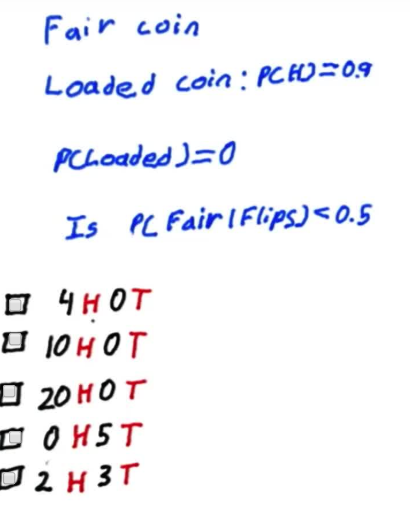 Fair coin
Loaded coin: P(H)=0.9
P(Loaded)=0
Is P(Fair|Flips)<0.5
4 H 0 T
10 H 0 T
20 H 0 T
0 H 5 T
2 H 3 T